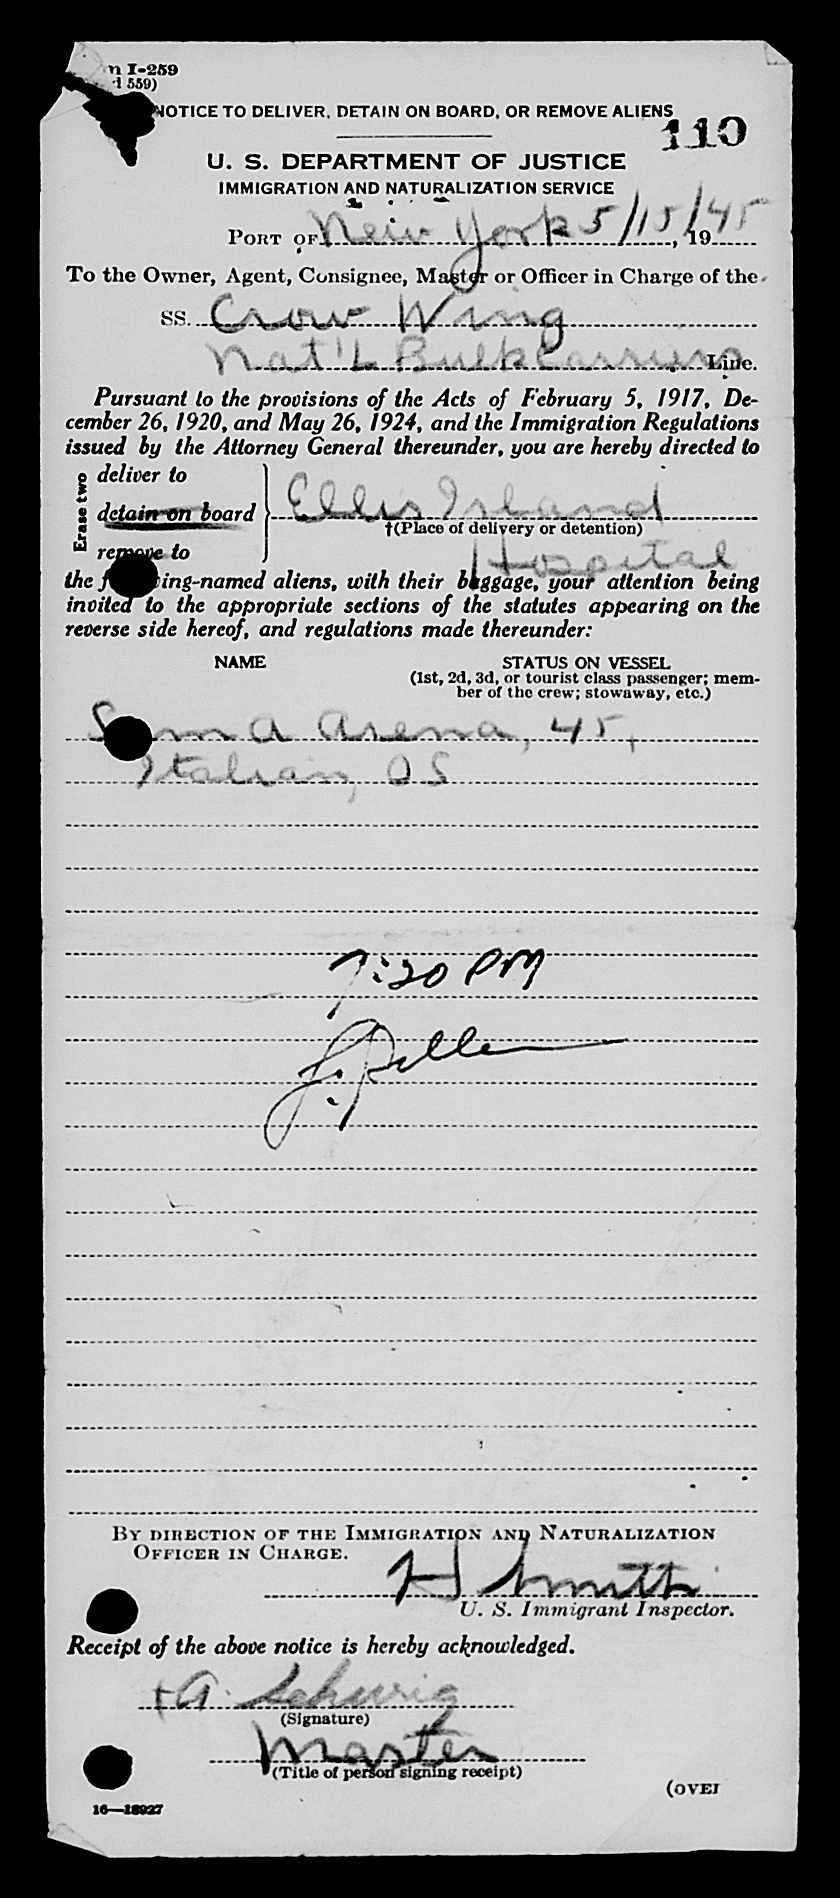 I-259
559)
NOTICE TO DELIVER, DETAIN ON BOARD, OR REMOVE ALIENS
110
U. S. DEPARTMENT OF JUSTICE
IMMIGRATION AND NATURALIZATION SERVICE
PORT OF New York 5/15/45, 19
To the Owner, Agent, Consignee, Master or Officer in Charge of the
SS. Crow Wing
Nat'l Bulk Carriers Line.
Pursuant to the provisions of the Acts of February 5, 1917, De-
cember 26, 1920, and May 26, 1924, and the Immigration Regulations
issued by the Attorney General thereunder, you are hereby directed to
Erase two
deliver to
detain on board
remove to
Ellis Island
†(Place of delivery or detention)
Hospital
the following-named aliens, with their baggage, your attention being
invited to the appropriate sections of the statutes appearing on the
reverse side hereof, and regulations made thereunder:
NAME STATUS ON VESSEL
(1st, 2d, 3d, or tourist class passenger; mem-
ber of the crew; stowaway, etc.)
Arena, 45,
Italian, OS
7:20 PM
BY DIRECTION OF THE IMMIGRATION AND NATURALIZATION
OFFICER IN CHARGE.
H Smith
U. S. Immigrant Inspector.
Receipt of the above notice is hereby acknowledged.
(Signature)
Master
(Title of person signing receipt)
16—18927
(OVER